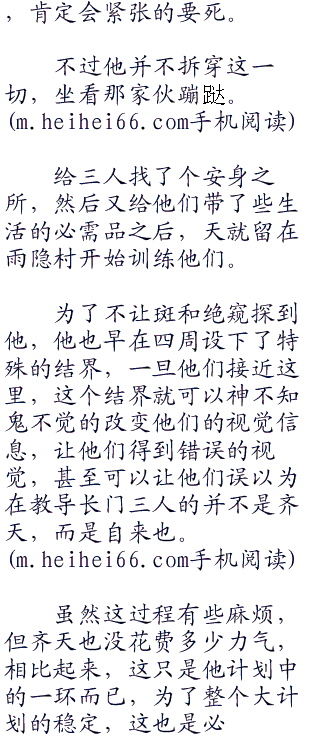 ，肯定会紧张的要死。
不过他并不拆穿这一
切，坐看那家伙蹦跶。
(m.heihei66.com手机阅读)
给三人找了个安身之
所，然后又给他们带了些生
活的必需品之后，天就留在
雨隐村开始训练他们。
为了不让斑和绝窥探到
他，他也早在四周设下了特
殊的结界，一旦他们接近这
里，这个结界就可以神不知
鬼不觉的改变他们的视觉信
息，让他们得到错误的视
觉，甚至可以让他们误以为
在教导长门三人的并不是齐
天，而是自来也。
(m.heihei66.com手机阅读)
虽然这过程有些麻烦，
但齐天也没花费多少力气，
相比起来，这只是他计划中
的一环而已，为了整个大计
划的稳定，这也是必